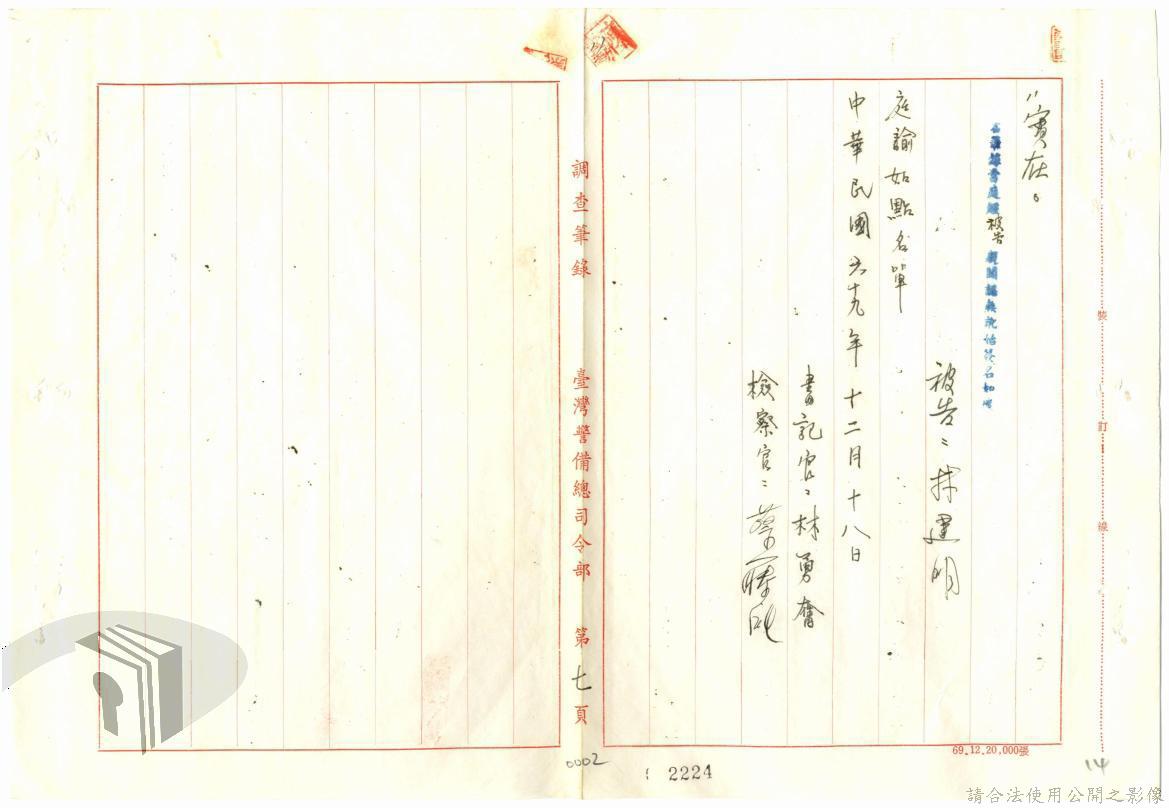 〃實在。
右筆錄當庭經被告親閱認無訛始簽名如后
被告：林建明
庭諭如點名單
中華民國六十九年十二月十八日
書記官：林勇奮
檢察官：蔡
調查筆錄 臺灣警備總司令部 第七頁
裝訂線
69.12.20,000張
0002
2224
14
請合法使用公開之影像